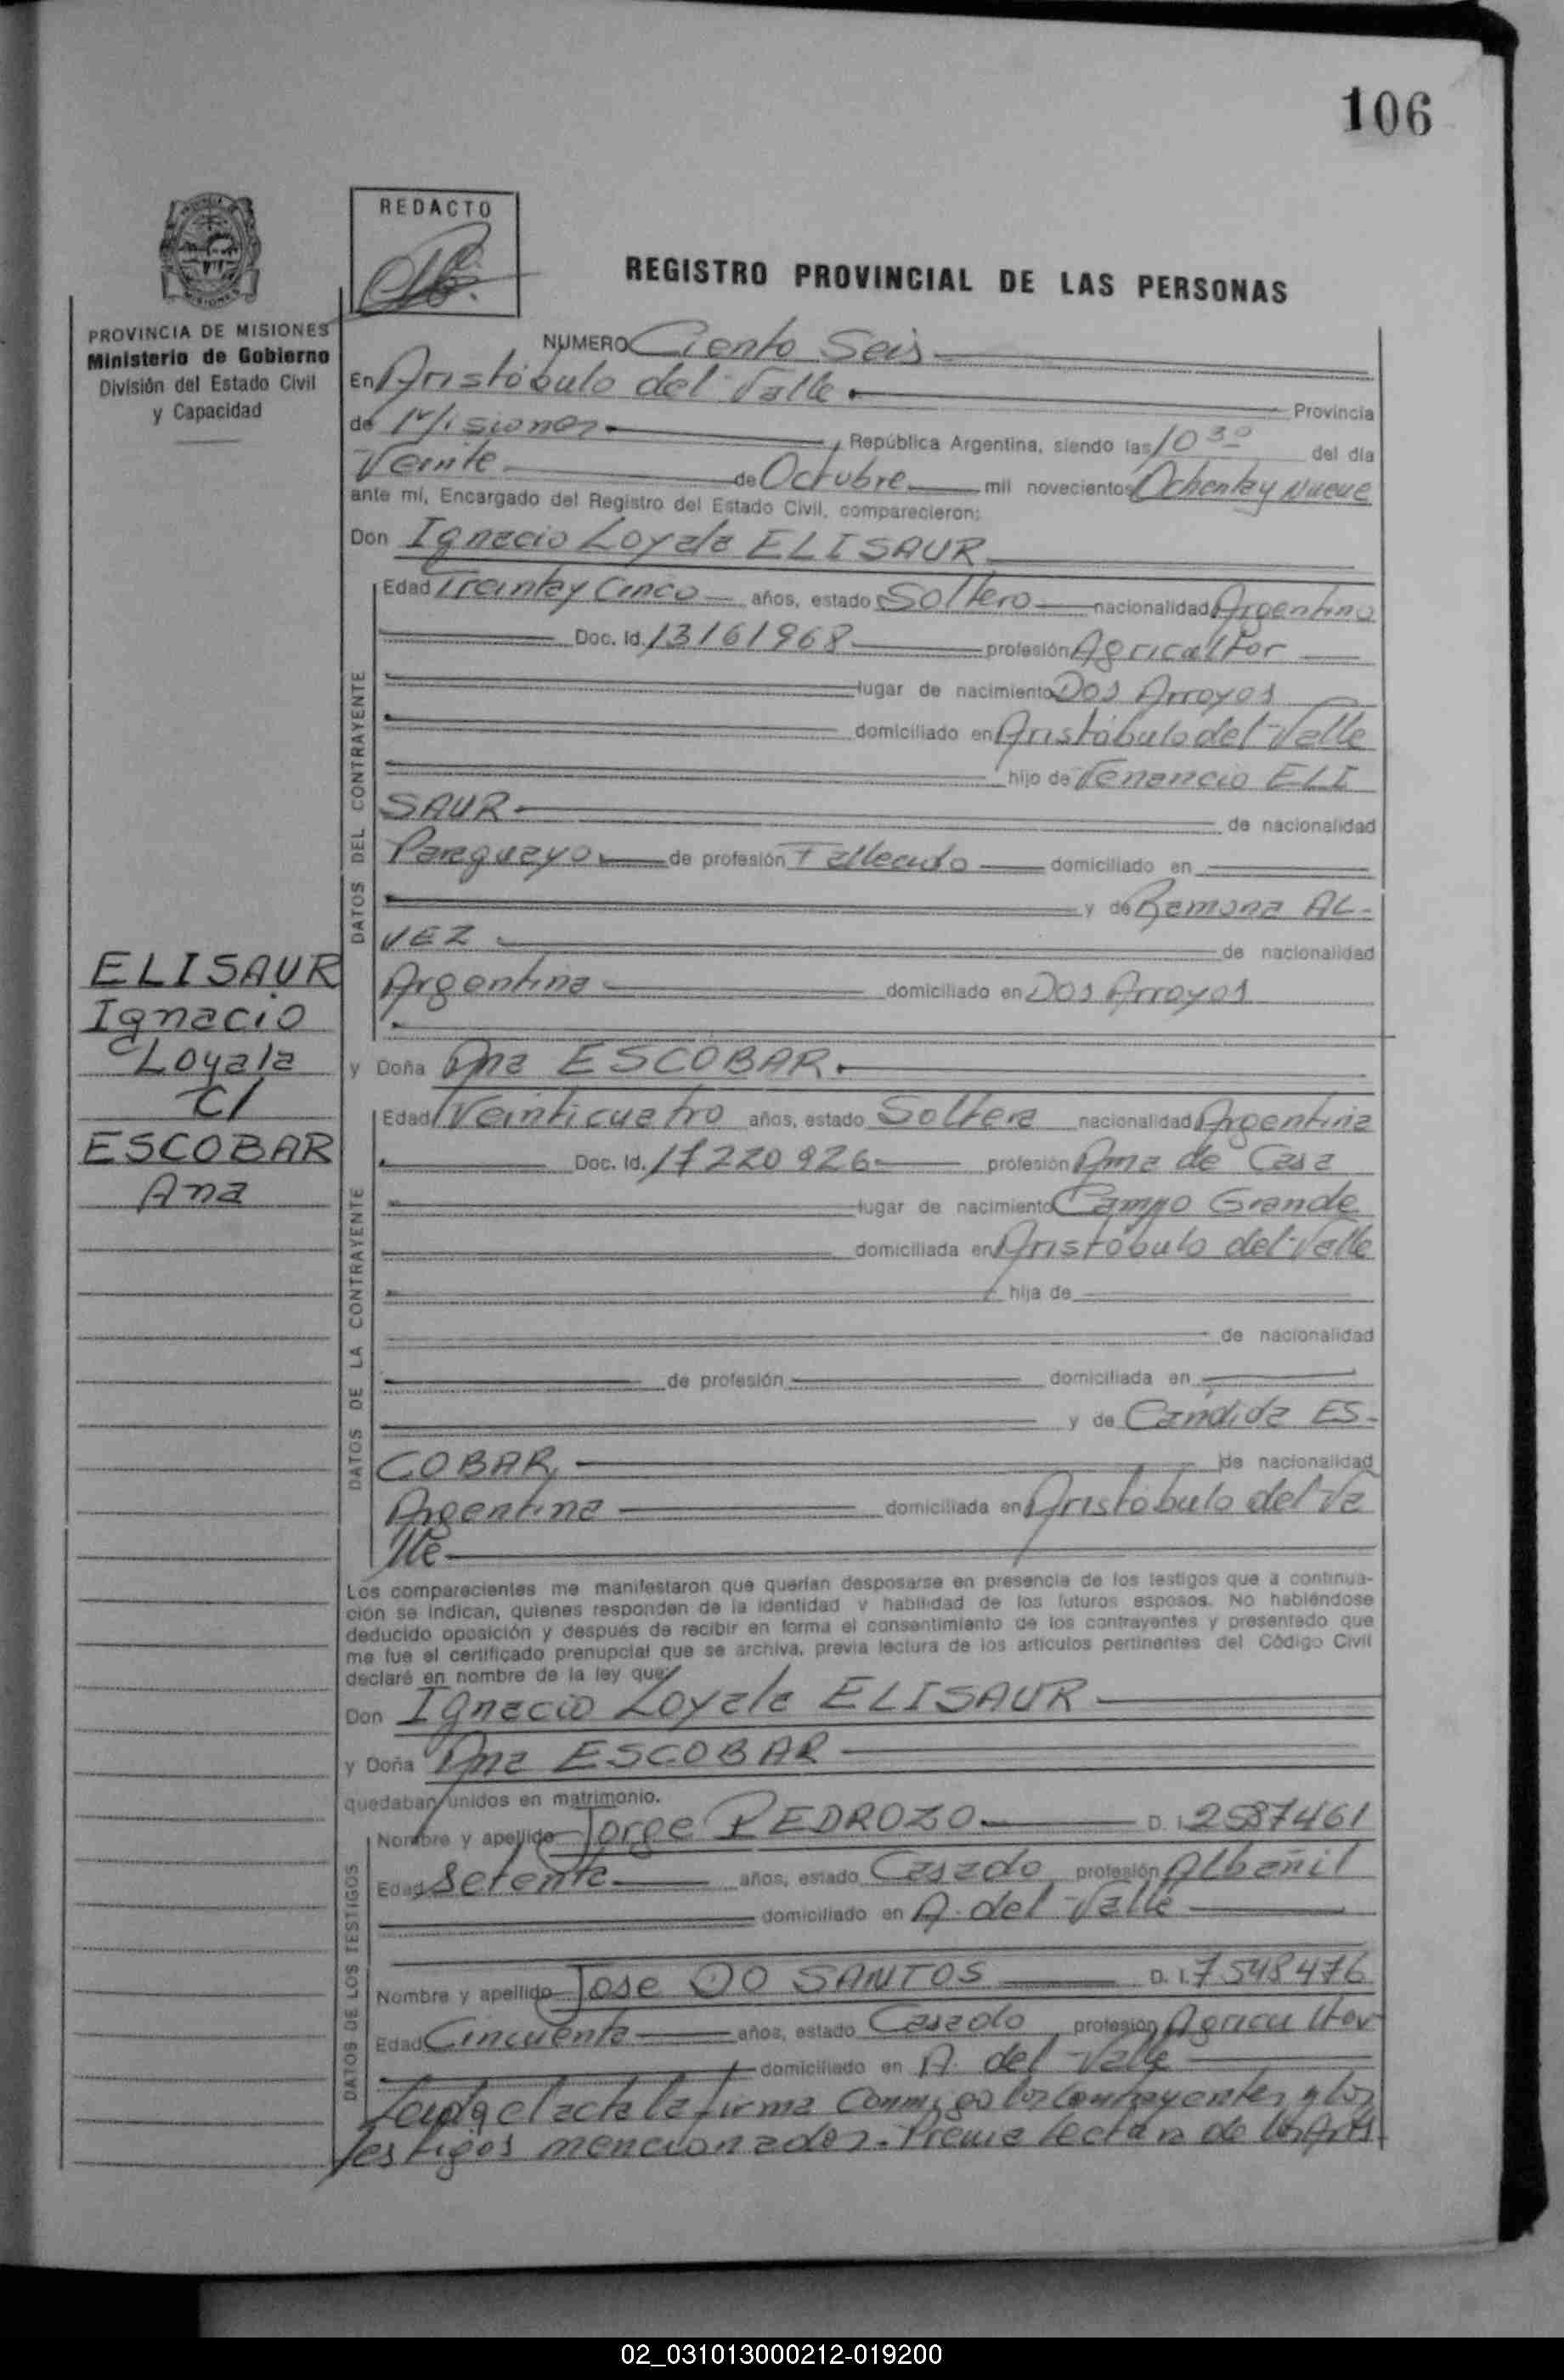 106
REDACTO
REGISTRO PROVINCIAL DE LAS PERSONAS
PROVINCIA DE MISIONES
Ministerio de Gobierno
División del Estado Civil
y Capacidad
NUMERO Ciento Seis
En Aristóbulo del Valle Provincia
de Misiones, República Argentina, siendo las 10 30 del día
Veinte de Octubre mil novecientos Ochenta y Nueve
ante mí, Encargado del Registro del Estado Civil, comparecieron:
Don Ignacio Loyala ELISAUR
DATOS DEL CONTRAYENTE
Edad Treinta y Cinco años, estado Soltero nacionalidad Argentino
Doc. Id. 13161968 profesión Agricultor
lugar de nacimiento Dos Arroyos
domiciliado en Aristóbulo del Valle
hijo de Venancio ELI
SAUR de nacionalidad
Paraguayo de profesión Fallecido domiciliado en
y de Ramona AL-
VEZ de nacionalidad
Argentina domiciliado en Dos Arroyos
ELISAUR
Ignacio
Loyala
C/
ESCOBAR
Ana
y Doña Ana ESCOBAR
DATOS DE LA CONTRAYENTE
Edad Veinticuatro años, estado Soltera nacionalidad Argentina
Doc. Id. 17220926 profesión Ama de Casa
lugar de nacimiento Campo Grande
domiciliada en Aristóbulo del Valle
hija de
de nacionalidad
de profesión domiciliada en
y de Cándida ES-
COBAR, de nacionalidad
Argentina domiciliada en Aristóbulo del Va
lle
Los comparecientes me manifestaron que querían desposarse en presencia de los testigos que a continua-
ción se indican, quienes responden de la identidad y habilidad de los futuros esposos. No habiéndose
deducido oposición y después de recibir en forma el consentimiento de los contrayentes y presentado que
me fue el certificado prenupcial que se archiva, previa lectura de los artículos pertinentes del Código Civil
declaré en nombre de la ley que:
Don Ignacio Loyala ELISAUR
y Doña Ana ESCOBAR
quedaban unidos en matrimonio.
DATOS DE LOS TESTIGOS
Nombre y apellido Jorge PEDROZO D. I. 2587461
Edad Setenta años, estado Casado profesión Albañil
domiciliado en A. del Valle
Nombre y apellido Jose DO SANTOS D. I. 7548476
Edad Cincuenta años, estado Casado profesión Agricultor
domiciliado en A. del Valle
Leída el acta la firma Conmigo los Contrayentes y los
testigos mencionados. Previa lectura de los Arts.
02_031013000212-019200